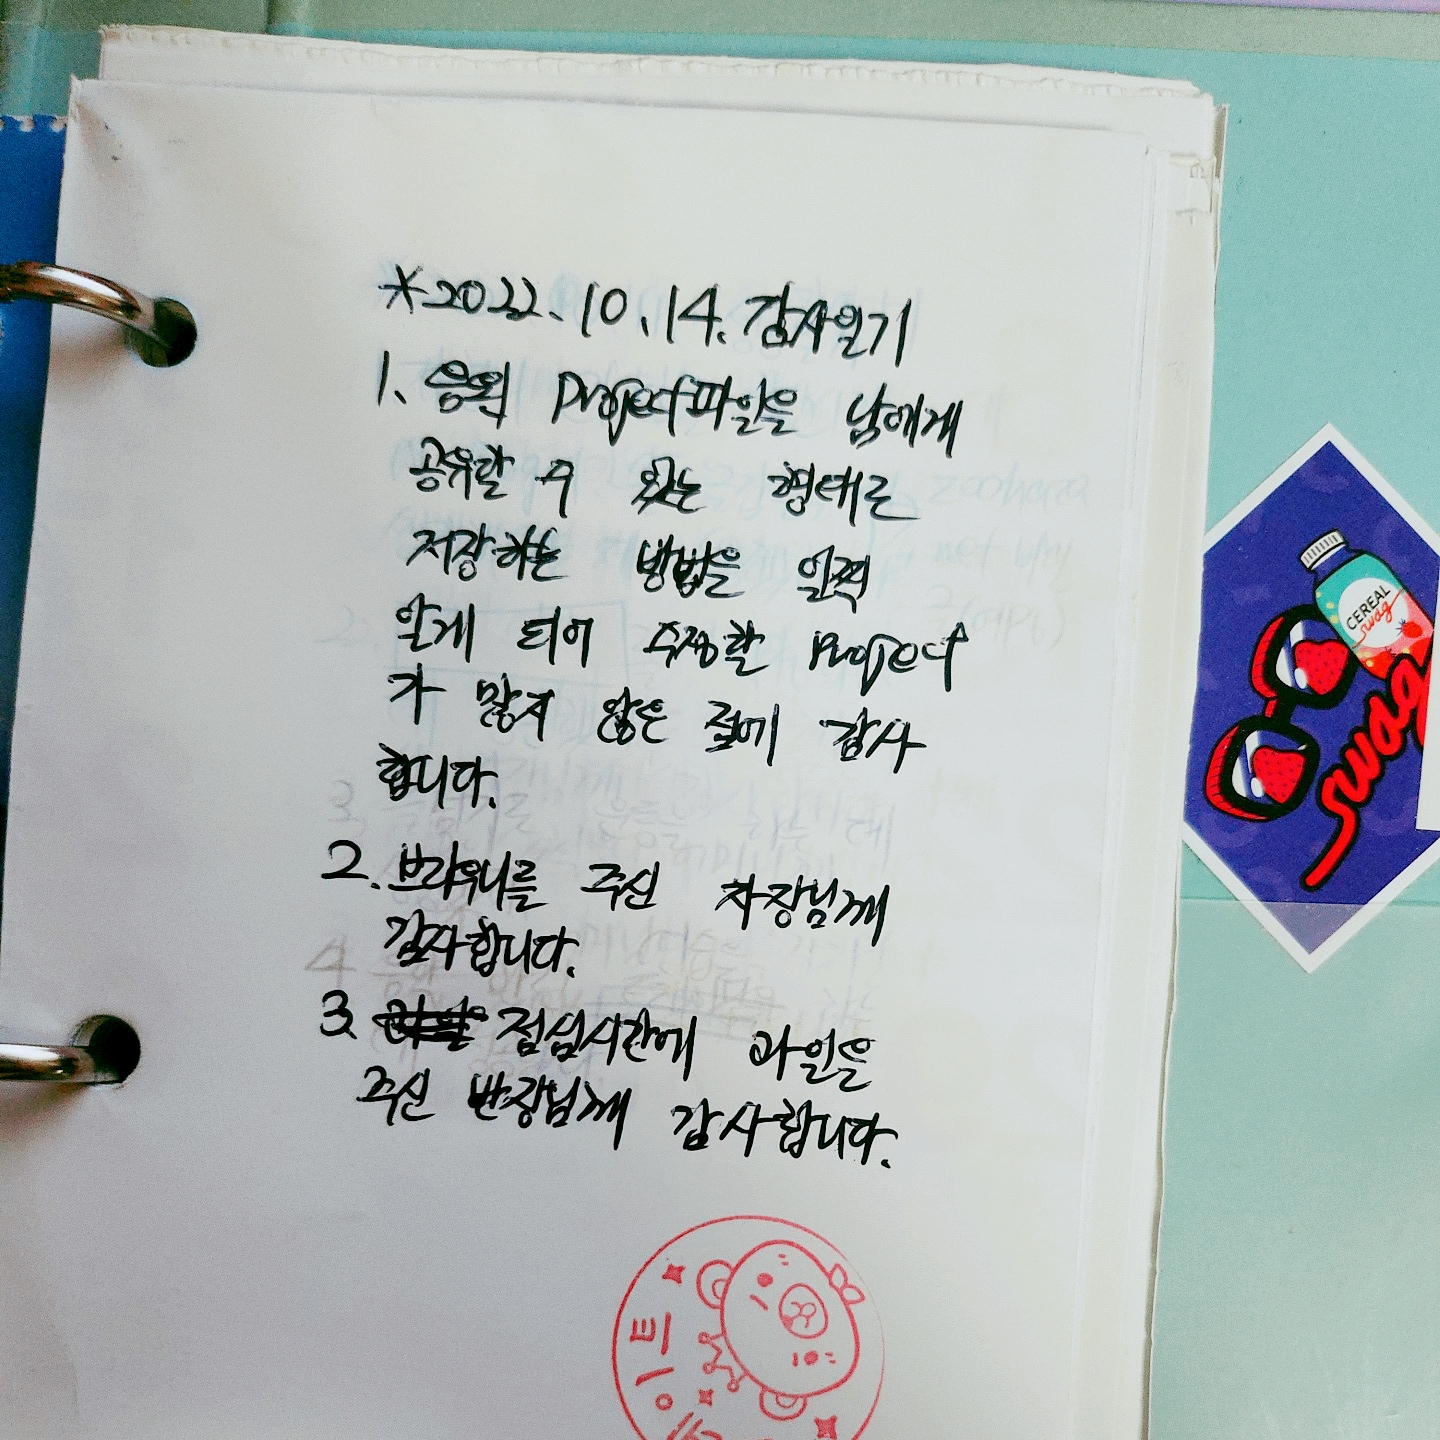 *2022.10.14. 감사일기
1. 음원 Project파일을 남에게
공유할 수 있는 형태로
저장하는 방법을 일찍
알게 되어 수정할 Project
가 많지 않은 점에 감사
합니다.
2. 브라우니를 주신 차장님께
감사합니다.
3. 점심시간에 과일을
주신 반장님께 감사합니다.
CEREAL
swag
swag